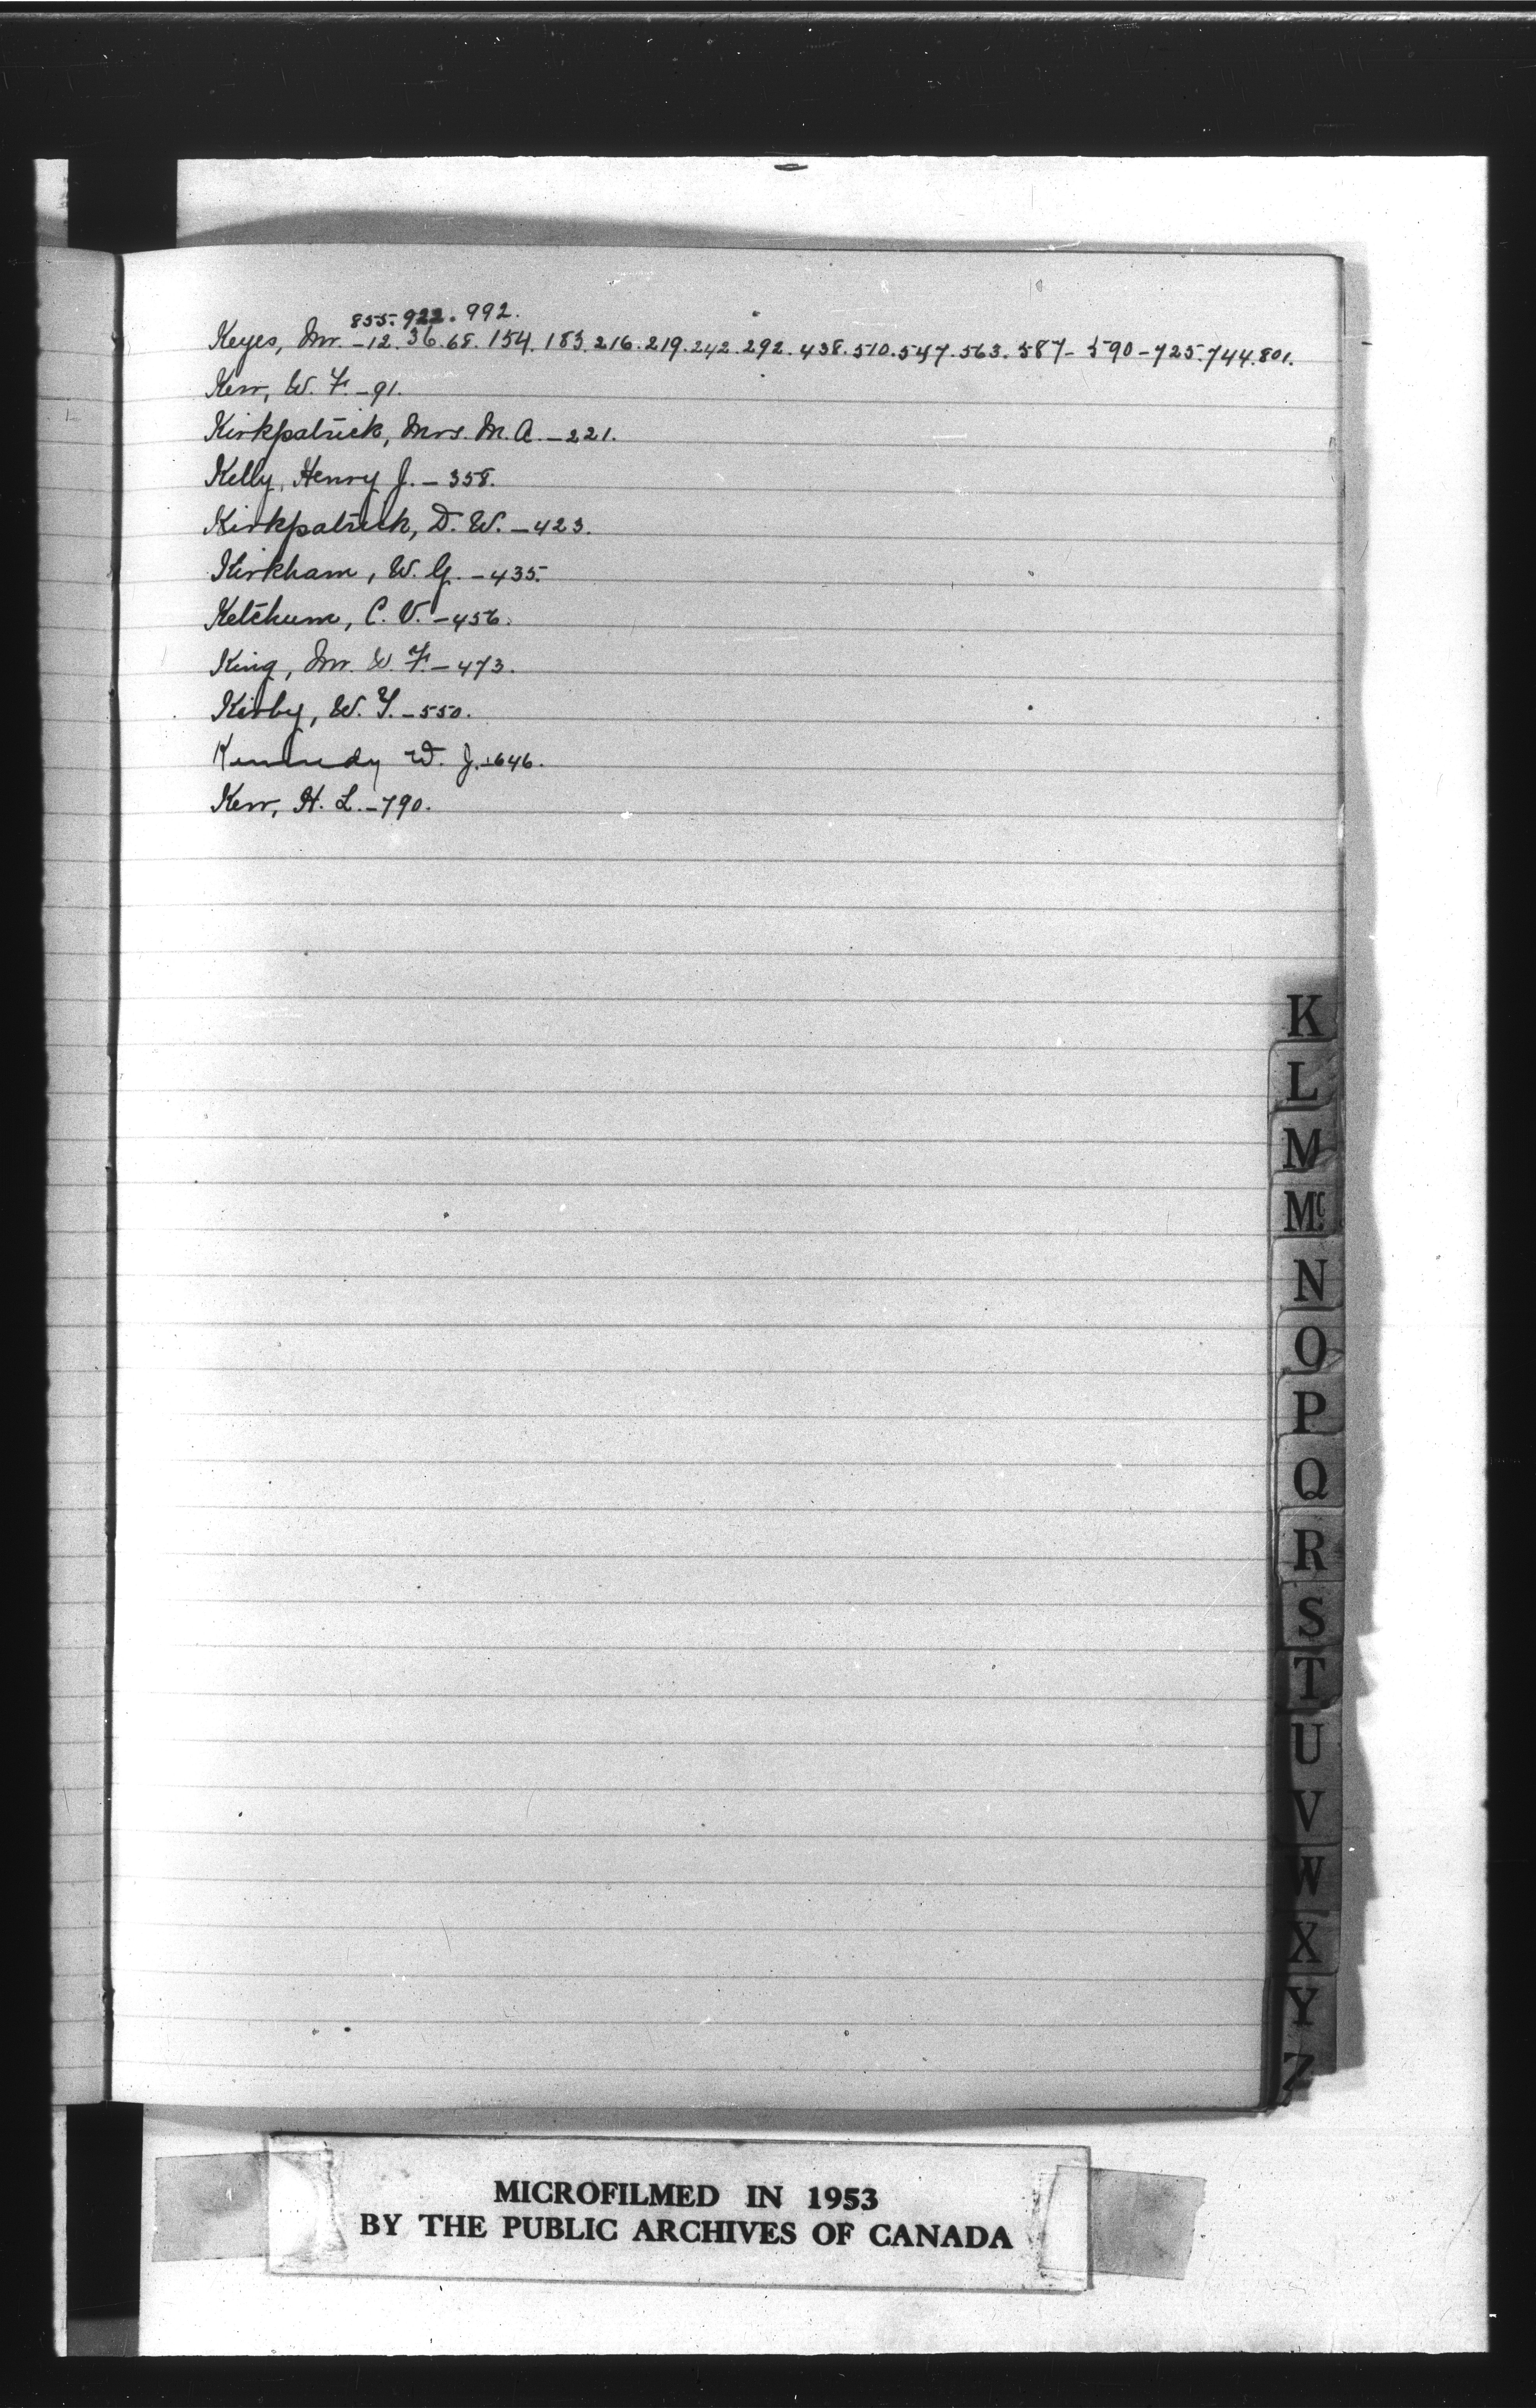 855. 922. 992.
Keyes, Mr. -12. 36. 68. 154. 183. 216. 219. 242. 292. 438. 510. 547. 563. 587- 590 - 725. 744. 801.
Kerr, W. F. - 91.
Kirkpatrick, Mrs. M. A. - 221.
Kelly, Henry J. - 358.
Kirkpatrick, D. W. - 423.
Kirkham, W. G. - 435.
Ketchum, C. V. - 456.
King, Mr. W. F. - 473.
Kirby, W. Y. - 550.
Kennedy W. J. - 646.
Kerr, H. L. - 790.
K
L
M
Mc
N
O
P
Q
R
S
T
U
V
W
X
Y
Z
MICROFILMED IN 1953
BY THE PUBLIC ARCHIVES OF CANADA